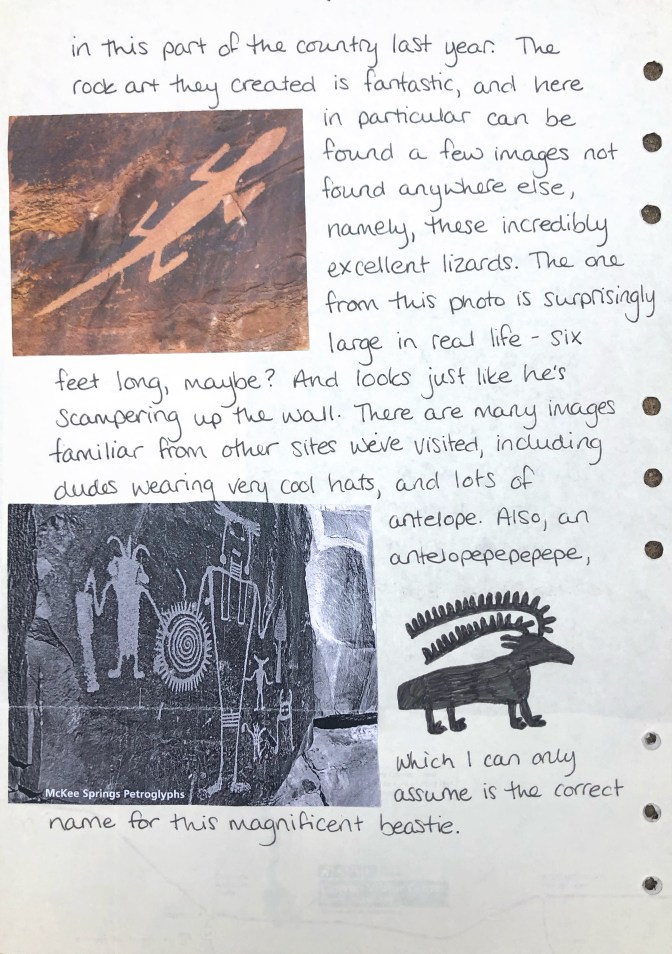 in this part of the country last year. The
rock art they created is fantastic, and here
in particular can be
found a few images not
found anywhere else,
namely, these incredibly
excellent lizards. The one
from this photo is surprisingly
large in real life - six
feet long, maybe? And looks just like he's
scampering up the wall. There are many images
familiar from other sites we've visited, including
dudes wearing very cool hats, and lots of
antelope. Also, an
antelopepepepepe,
McKee Springs Petroglyphs
which I can only
assume is the correct
name for this magnificent beastie.